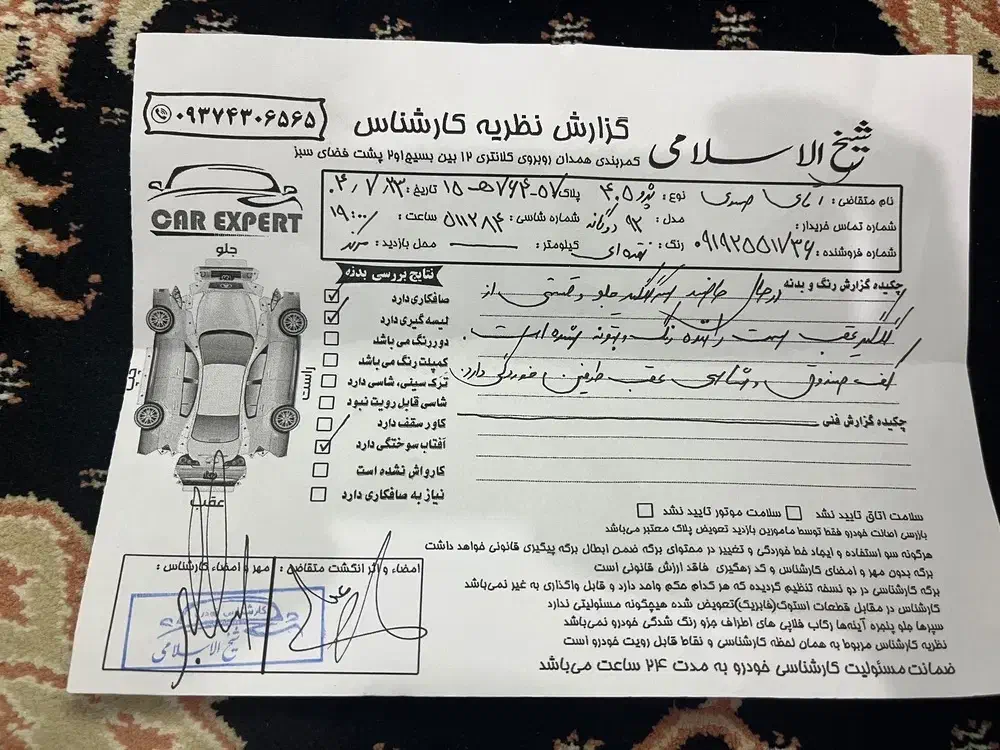 ۰۹۳۷۴۳۰۶۵۶۵
گزارش نظریه کارشناس
شیخ الاسلامی
کمربندی همدان روبروی کلانتری ۱۲ بین بسیج۱و۲ پشت فضای سبز
CAR EXPERT
نام متقاضی : آقای صمدی نوع : پژو ۴۰۵ پلاک : تاریخ :
شماره تماس خریدار : مدل : ۹۲ دوگانه شماره شاسی : ۵۱۱۲۸۴ ساعت : ۱۹:۰۰
شماره فروشنده : رنگ : نقره ای کیلومتر : محل بازدید :
جلو
راست
چپ
عقب
نتایج بررسی بدنه
صافکاری دارد
لیسه گیری دارد
دوررنگ می باشد
کمپلت رنگ می باشد
ترک سینی، شاسی دارد
شاسی قابل رویت نبود
کاور سقف دارد
آفتاب سوختگی دارد
کارواش نشده است
نیاز به صافکاری دارد
چکیده گزارش رنگ و بدنه در حال حاضر گلگیر جلو و قسمتی از
گلگیر عقب سمت راننده رنگ و بتونه شده است.
کف صندوق و شاسی عقب طرفین خوردگی دارد.
چکیده گزارش فنی :
سلامت اتاق تایید نشد سلامت موتور تایید نشد
بازرسی اصالت خودرو فقط توسط مامورین بازدید تعویض پلاک معتبر می‌باشد
هرگونه سو استفاده و ایجاد خط خوردگی و تغییر در محتوای برگه ضمن ابطال برگه پیگیری قانونی خواهد داشت
برگه بدون مهر و امضای کارشناس و کد رهگیری فاقد ارزش قانونی است
برگه کارشناسی در دو نسخه تنظیم گردیده که هر کدام حکم واحد دارد و قابل واگذاری به غیر نمی‌باشد
کارشناس در مقابل قطعات استوک(فابریک)تعویض شده هیچگونه مسئولیتی ندارد
سپرها جلو پنجره آینه‌ها رکاب فلاپی های اطراف جزو رنگ شدگی خودرو نمی‌باشد
نظریه کارشناس مربوط به همان لحظه کارشناسی و نقاط قابل رویت خودرو است
ضمانت مسئولیت کارشناسی خودرو به مدت ۲۴ ساعت می‌باشد
امضاء و اثر انگشت متقاضی : مهر و امضاء کارشناس :
شیخ الاسلامی